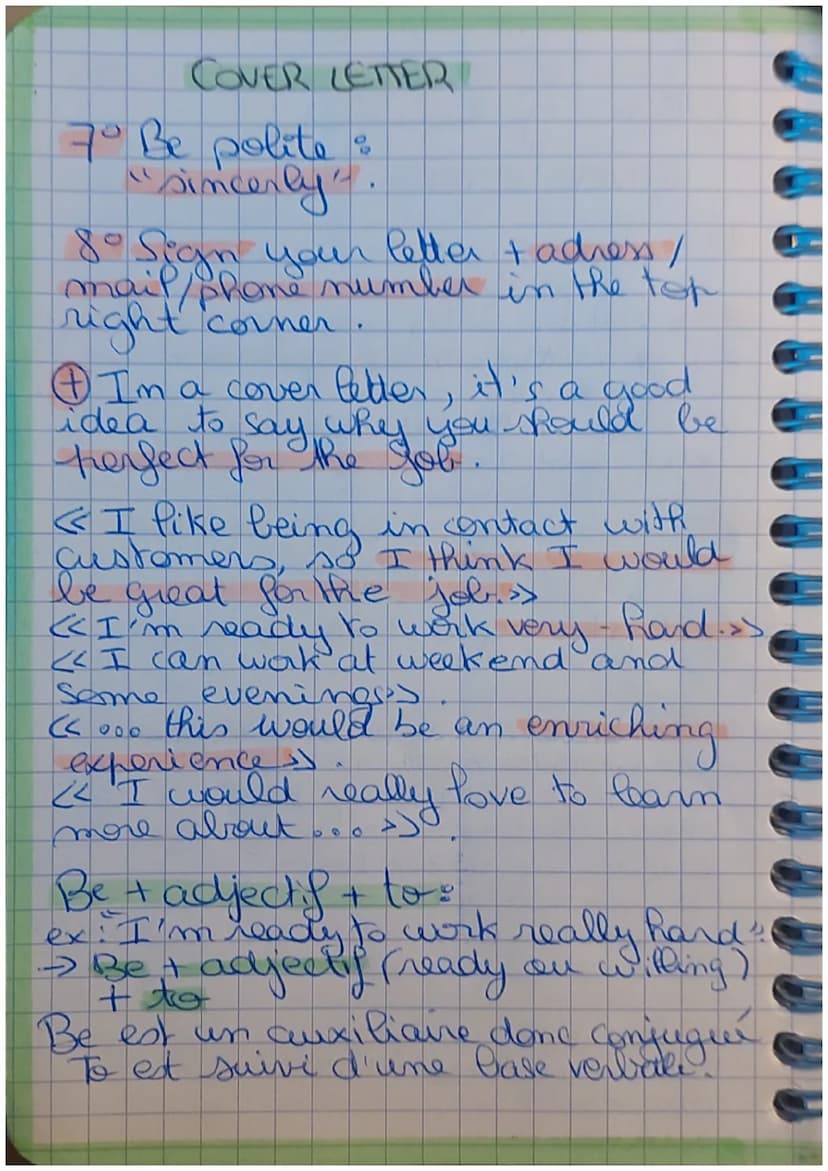 COVER LETTER
7° Be polite :
"sincerly".
8° Sign your letter + adress /
mail/phone number in the top
right corner.
+ In a cover letter, it's a good
idea to say why you should be
perfect for the job.
<< I like being in contact with
customers, so I think I would
be great for the job.>>
<< I'm ready to work very-hard.>>
<< I can work at weekend and
some evenings>>.
<< ... this would be an enriching
experience>>.
<< I would really love to learn
more about... >>.
Be + adjectif + to:
ex: "I'm ready to work really hard".
→ Be + adjectif (ready ou willing)
+ to
Be est un auxiliaire donc conjugué
To est suivi d'une base verbale.